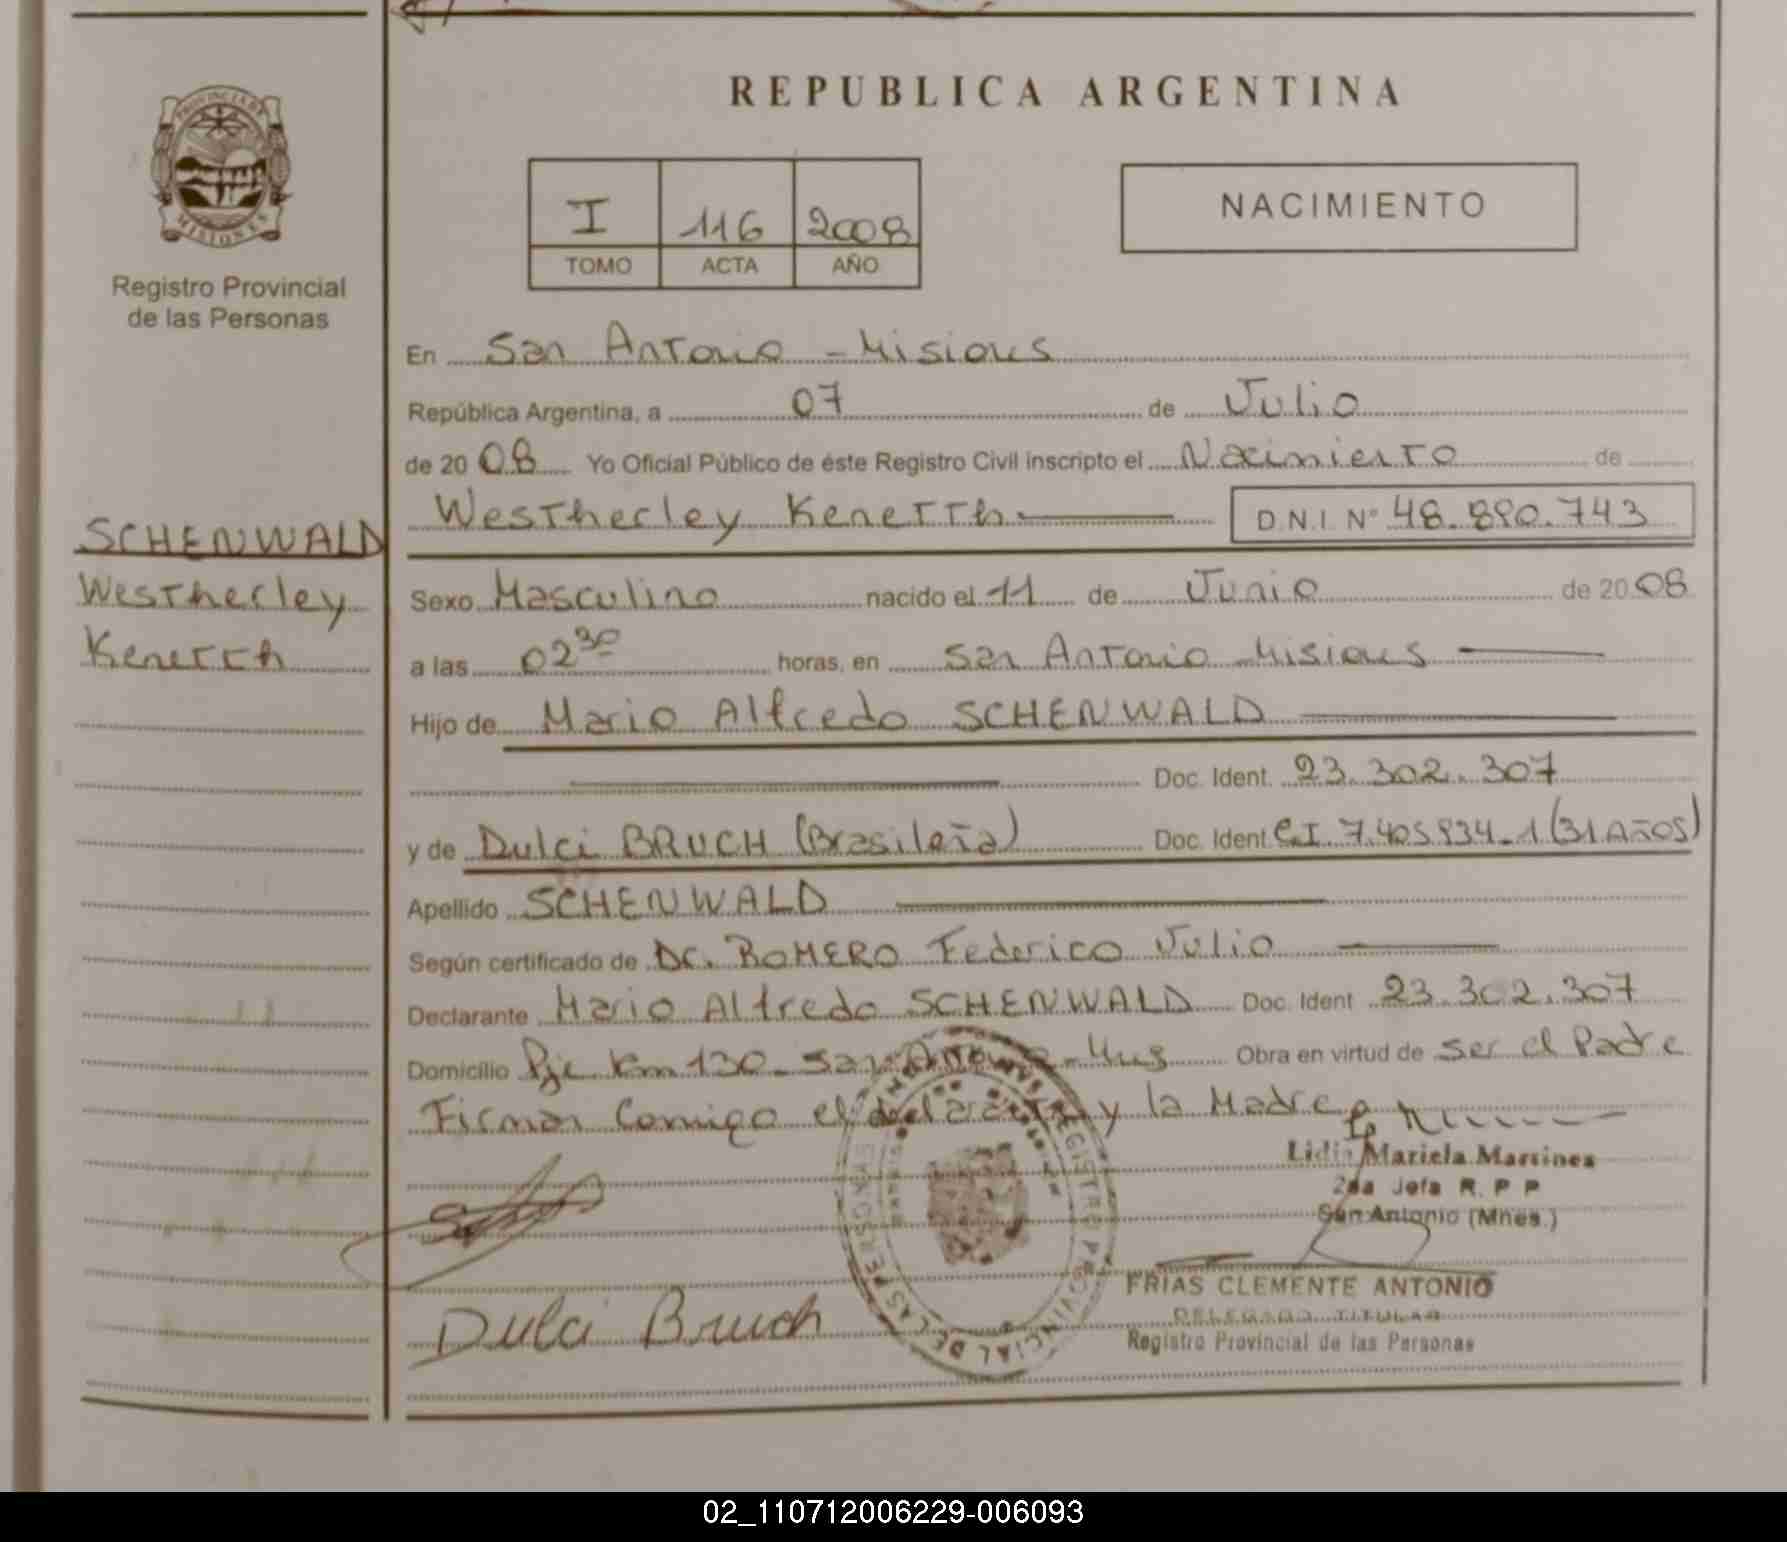 REPUBLICA ARGENTINA
PROVINCIA DE
MISIONES
Registro Provincial
de las Personas
I 116 2008
TOMO ACTA AÑO
NACIMIENTO
En San Antonio - Misiones
República Argentina, a 07 de Julio
de 2008 Yo Oficial Público de éste Registro Civil inscripto el Nacimiento de
Westherley Kenetth D.N.I. Nº 48.890.743
SCHENWALD
Westherley
Kenetth
Sexo Masculino nacido el 11 de Junio de 2008
a las 02 30 horas, en San Antonio Misiones
Hijo de Mario Alfredo SCHENWALD
Doc. Ident. 23.302.307
y de Dulci BRUCH (Brasileña) Doc. Ident. C.I 7.405.934-1 (31 Años)
Apellido SCHENWALD
Según certificado de Dr. ROMERO Federico Julio
Declarante Mario Alfredo SCHENWALD Doc. Ident 23.302.307
Domicilio Pje Km 130 - San Antonio - Mnes Obra en virtud de ser el Padre
Firman Comigo el declarante y la Madre
Lidia Mariela Martinez
2da Jefa R. P P
San Antonio (Mnes.)
REGISTRO PROVINCIAL DE LAS PERSONAS
FRIAS CLEMENTE ANTONIO
DELEGADO TITULAR
Registro Provincial de las Personas
Dulci Bruch
02_110712006229-006093